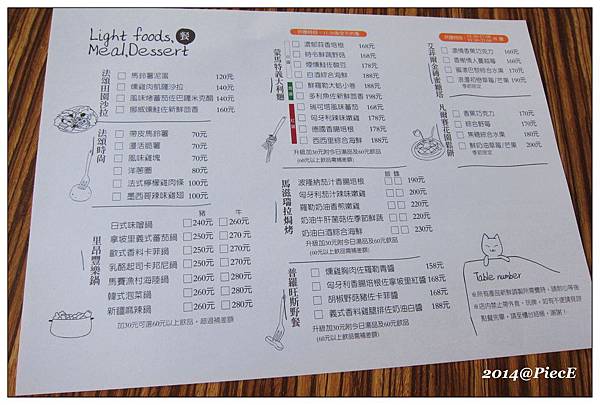 Light foods, 餐
Meal, Dessert
法頌田園沙拉
馬鈴薯泥溫 120元
燻雞肉凱薩沙拉 140元
風味烤蕃茄佐巴薩米克醋 140元
挪威燻鮭佐鮮甜茴香 160元
法頌時尚
帶皮馬鈴薯 70元
漫活脆薯 70元
風味雞塊 70元
洋蔥圈 80元
法式檸檬雞肉條 100元
墨西哥辣味雞翅 100元
里昂豐樂鍋
豬 牛
日式味噌鍋 240元 260元
拿坡里義式蕃茄鍋 250元 270元
歐式香料卡菲鍋 250元 270元
乳酪起司卡邦尼鍋 250元 270元
馬賽漁村海陸鍋 260元 280元
韓式泡菜鍋 260元 280元
新疆麻辣鍋 260元 280元
加30元可選60元以上飲品，超過補差額
蒙馬特義大利麵
濃郁蒜香培根 168元
時令鮮蔬野菇 168元
煙燻鮭佐頓豆 188元
白酒綜合海鮮 188元
鮮羅勒大蛤小卷 188元
多利魚佐新鮮茴香 198元
瑞可塔風味蕃茄 168元
匈牙利辣味嫩雞 178元
德國香腸培根 168元
西西里綜合海鮮 188元
升級加30元附今日湯品及60元飲品
(60元以上飲品需補差額)
馬滋瑞拉焗烤
飯 麵
波隆納茄汁香腸培根 190元
匈牙利茄汁辣味嫩雞 200元
羅勒奶油香煎嫩雞 200元
奶油牛肝菌菇佐季節鮮蔬 220元
奶油白酒綜合海鮮 230元
升級加30元附今日湯品及60元飲品
(60元以上飲品需補差額)
普羅旺斯野餐
燻雞胸肉佐羅勒青醬 158元
匈牙利香腸培根佐拿坡里紅醬 168元
胡椒野菇豬佐卡菲醬 168元
義式香料雞腿排佐奶油白醬 188元
升級加30元附今日湯品及60元飲品
(60元以上飲品需補差額)
艾菲爾金磚蜜糖塔
濃情香蕉巧克力 160元
香榭情人蔓越莓 160元
蜜漾巴黎綜合水果 170元
浪漫初戀草莓/芒果 190元
季節限定
凡爾賽花園鬆餅
香蕉巧克力 170元
綜合野莓 170元
焦糖綜合水果 180元
鮮奶油草莓/芒果 200元
季節限定
Table number
※所有產品新鮮調製所需費時，請耐心等候
※店內禁止帶外食，玩牌，如有不便請見諒
點餐完畢，請至櫃台結帳，謝謝！
2014@PiecE